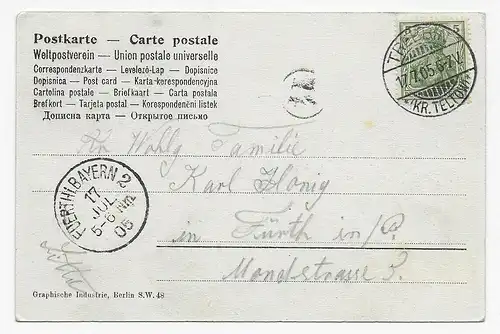 Postkarte — Carte postale
Weltpostverein — Union postale universelle
Correspondenzkarte — Levelező-Lap — Dopisnice
Dopisnica — Post card — Karta-korespondencyjna
Cartolina postale — Briefkaart — Carta postala
Brefkort — Tarjeta postal — Korespondenční listek
Дописна карта — Открытое письмо
5
17.7.05.6-7V.
(KR. TELTOW)
An Wohlg. Familie
Karl Honig
in Fürth in/B.
Mondstrasse 3.
FUERTH I. BAYERN 2
17
JUL
5-6 Nm
05
Graphische Industrie, Berlin S.W. 48